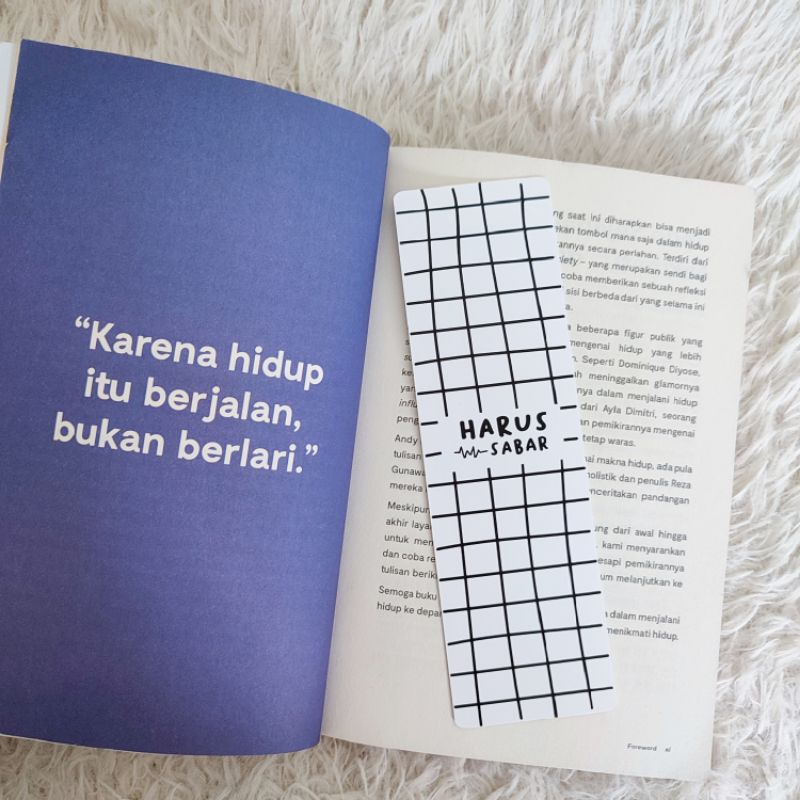 “Karena hidup
itu berjalan,
bukan berlari.”
HARUS
SABAR
saat ini diharapkan bisa menjadi
tombol mana saja dalam hidup
secara perlahan. Terdiri dari
– yang merupakan sendi bagi
coba memberikan sebuah refleksi
sisi berbeda dari yang selama ini
beberapa figur publik yang
mengenai hidup yang lebih
Seperti Dominique Diyose,
meninggalkan glamornya
dalam menjalani hidup
dari Ayla Dimitri, seorang
pemikirannya mengenai
tetap waras.
Andy
makna hidup, ada pula
tulisan
holistik dan penulis Reza
Gunawan
menceritakan pandangan
mereka
dari awal hingga
akhir
kami menyarankan
untuk
pemikirannya
dan coba
melanjutkan ke
tulisan
Semoga buku
dalam menjalani
hidup ke
menikmati hidup.
Foreword xi